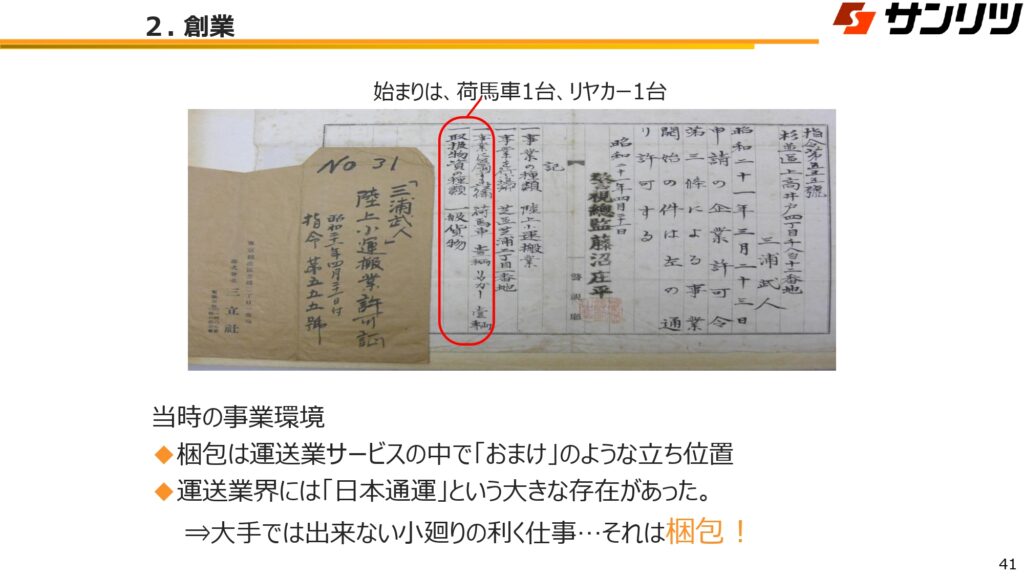 2. 創業
サンリツ
始まりは、荷馬車1台、リヤカー1台
指令第五五五號
杉並區上高井戸四丁目千八百十二番地
三浦武人
昭和二十一年三月二十三日
申請の企業許可令
第三條による事業
開始の件は左の通
り許可する
昭和二十一年四月二十二日
警視總監藤沼庄平
警視廳
記
一事業の種類 陸上小運搬業
一事業を行ふ場所 芝區芝浦二丁目一番地
荷馬車 壹輌 リヤカー 壹輌
取扱物資の種類 一般貨物
NO 31
「三浦武人」
陸上小運搬業許可証
指令第五五五號
三立社
当時の事業環境
◆梱包は運送業サービスの中で「おまけ」のような立ち位置
◆運送業界には「日本通運」という大きな存在があった。
⇒大手では出来ない小廻りの利く仕事…それは梱包！
41